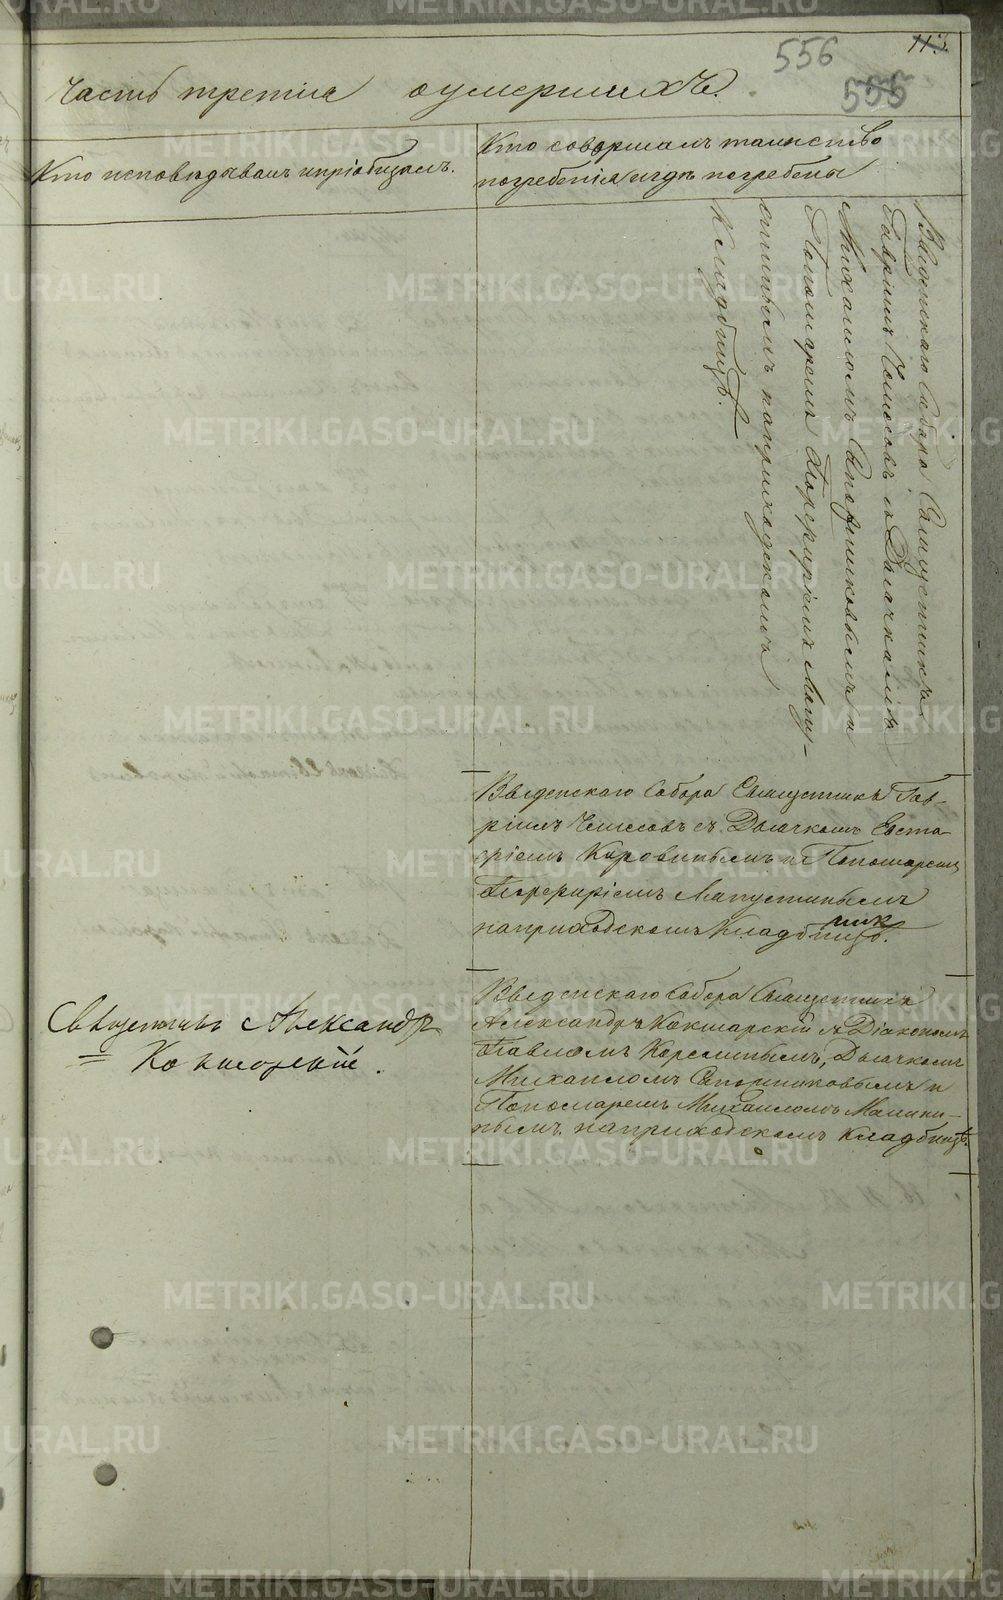 556
115
555
Часть третія о умершихъ.
Кто исповѣдывалъ и пріобщалъ.
Кто совершалъ таинство
погребенія и гдѣ погребены
Введенскаго Собора Священникъ
Гавріилъ съ Дьячкомъ
Михаиломъ Сапожниковымъ и
Пономаремъ Порфиріемъ Мапу-
стинымъ на приходскомъ
Кладбищѣ.
Введенскаго Собора Священникъ Гав-
ріилъ съ Дьячкомъ Евста-
фіемъ Коровинымъ и Пономаремъ
Порфиріемъ Мапустинымъ
на приходскомъ Кладбищѣ.
Священникъ Александръ
Кокшарскій.
Введенскаго Собора Священникъ
Александръ Кокшарскій съ Діакономъ
Павломъ Дьячкомъ
Михаиломъ Сапожниковымъ и
Пономаремъ Михаиломъ Мамин-
нымъ на приходскомъ кладбищѣ.
METRIKI.GASO-URAL.RU